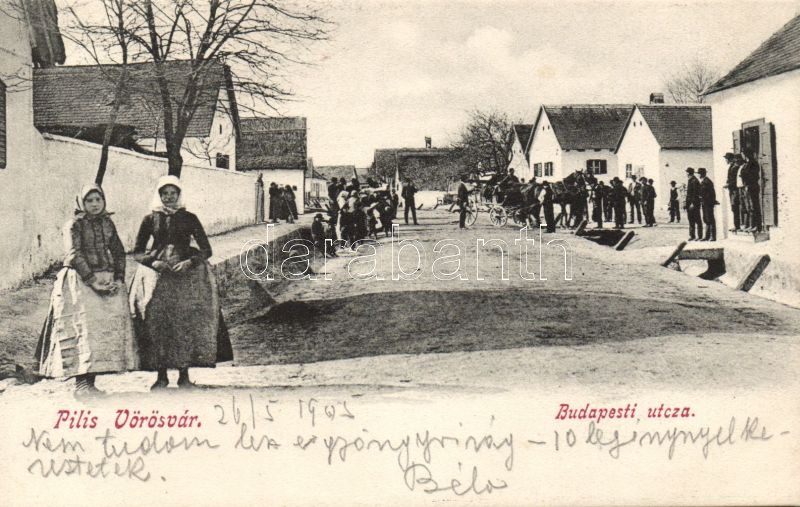 darabanth
Pilis Vörösvár. 26/5 1905 Budapesti utcza.
Nem tudom lesz e gyöngyvirág – 10
Béla